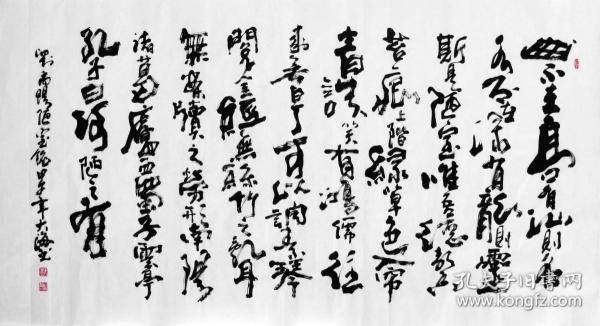 山不在高有仙則名
水不在深有龍則靈
斯是陋室唯吾德馨
苔痕上階綠草色入簾
青談笑有鴻儒往
來無白丁可以調素琴
閱金經無絲竹之亂耳
無案牘之勞形南陽
諸葛廬西蜀子雲亭
孔子曰何陋之有
劉禹錫陋室銘甲午年
孔夫子旧书网
www.kongfz.com